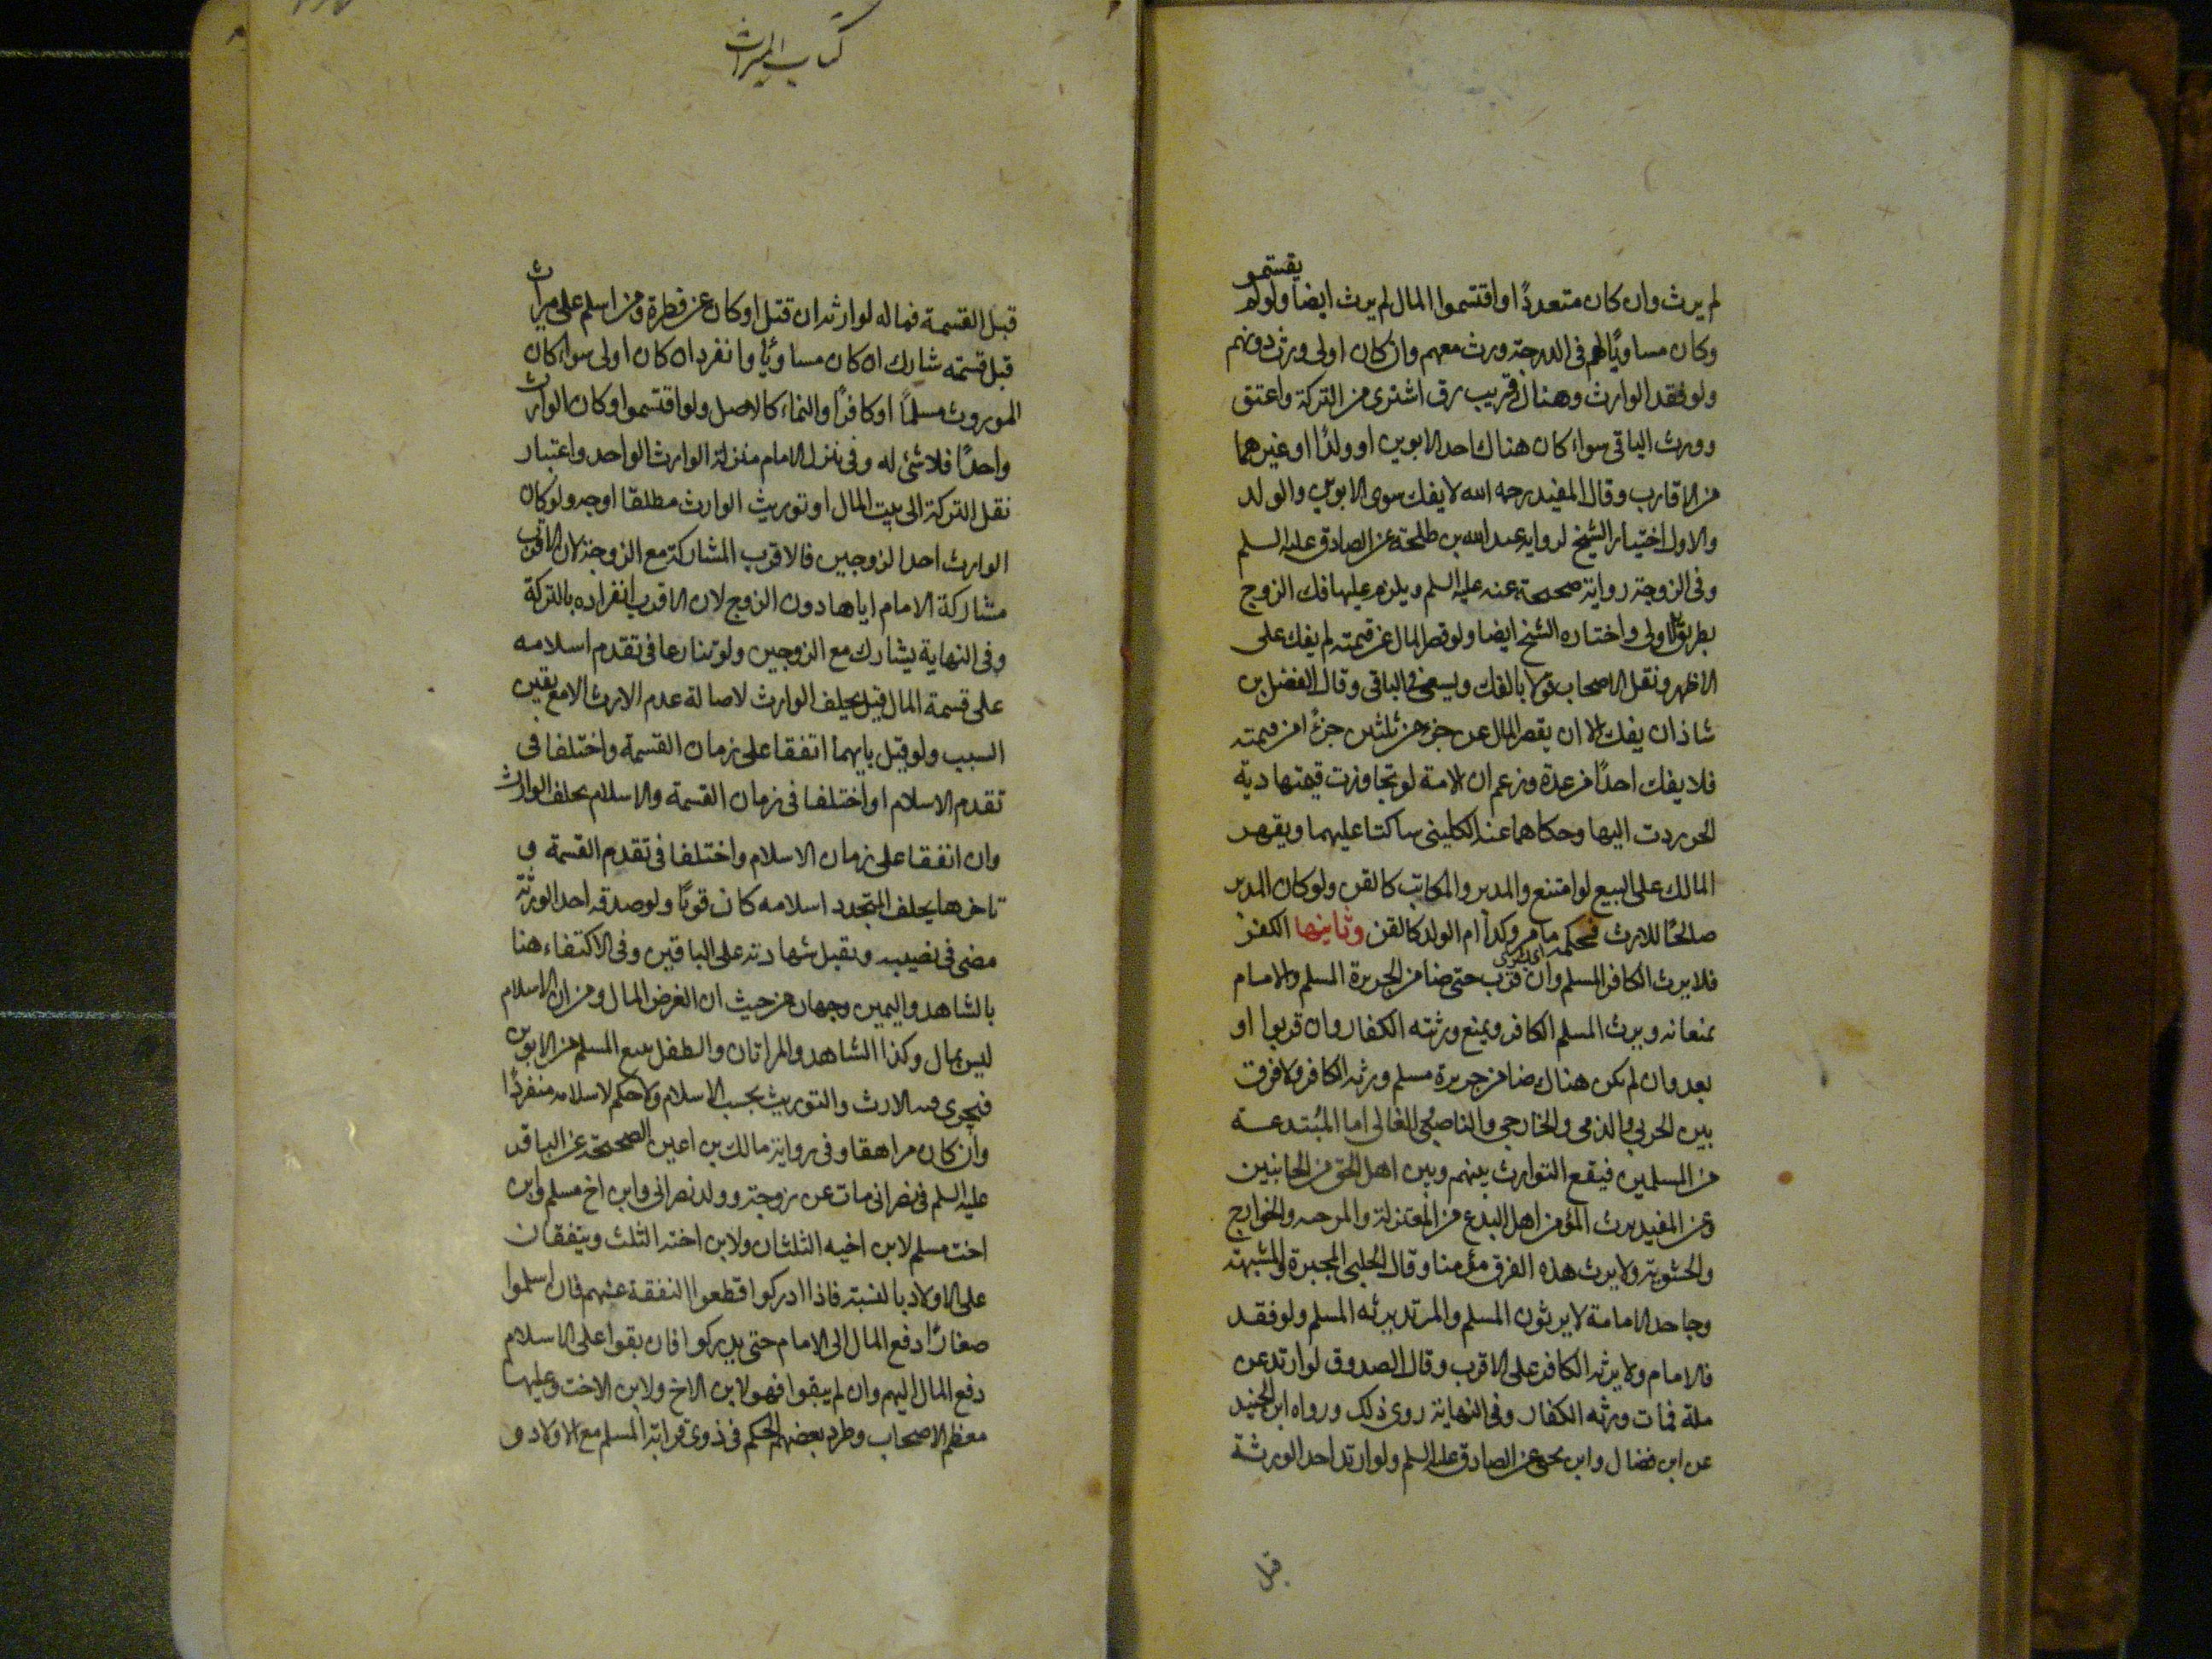 لم يرث وان كان متعددًا واقتسموا المال لم يرث ايضا ولو لم يقتسموا
وكان مساويًا لهم فى الدرجة ورث معهم وان كان اولى ورث دونهم
ولو فقد الوارث وهناك قريب رق اشترى من التركة واعتق
وورث الباقى سواء كان هناك احد الابوين او ولدًا او غيرهما
من الاقارب وقال المفيد رحمه الله لا يفك سوى الابوين والولد
والاول اختيار الشيخ لرواية عبد الله بن طلحة عن الصادق عليه السلم
وفى الزوجة رواية صحيحة عنه عليه السلم ويلزم عليها فك الزوج
بطريق الاولى واختاره الشيخ ايضا ولو قصر المال عن قيمته لم يفك على
الاظهر ونقل الاصحاب قولا بالفك ويسعى فى الباقى وقال الفضل بن
شاذان يفك الا ان يقصر المال عن جزء من ثلثين جزءًا من قيمته
فلا يفك احدًا من عدة وزعم ان الامة لو تجاوزت قيمتها دية
الحر ردت اليها وحكاهما عنه الكلينى ساكتا عليهما ويقهر
المالك على البيع لو امتنع والمدبر والمكاتب كالقن ولو كان المدبر
صالحًا للارث فحكمه ما مر وكذا ام الولد كالقن وثانيها الكفر
فلا يرث الكافر المسلم وان قرب حتى ضامن الجريرة المسلم والامام
يمنعانه ويرث المسلم الكافر ويمنع ورثته الكفار وان قربوا او
بعد وان لم يكن هناك ضامن جريرة مسلم ورثه الكافر ولا فرق
بين الحربى والذمى والخارجى والناصبى والغالى اما المبتدعة
من المسلمين فيقع التوارث بينهم وبين اهل الحق من الجانبين
وعن المفيد يرث المؤمن اهل البدع من المعتزلة والمرجئه والخوارج
والحشوية ولا يرث هذه الفرق مؤمنا وقال الحلبى المجبرة والمشبهة
وجاحد الامامة لا يرثون المسلم والمرتد يرثه المسلم ولو فقد
فالامام ولا يرثه الكافر على الاقرب وقال الصدوق لو ارتد عن
ملة فمات ورثه الكفار وفى النهاية روى ذلك ورواه ابن الجنيد
عن ابن فضال وابن يحيى عن الصادق عليه السلم ولو ارتد احد الورثة
قبل
كتاب الميراث
قبل القسمة فماله لوارثه ان قتل او كان عن فطرة ومن اسلم على ميراث
قبل قسمته شارك ان كان مساويًا وانفرد ان كان اولى سواء كان
الموروث مسلمًا او كافرًا والنماء كالاصل ولو اقتسموا وكان الوارث
واحدًا فلا شئ له وفى تنزل الامام منزلة الوارث الواحد واعتبار
نقل التركة الى بيت المال او توريث الوارث مطلقا اوجه ولو كان
الوارث احد الزوجين فالاقرب المشاركة مع الزوجة لان الاقرب
مشاركة الامام اياها دون الزوج لان الاقرب انفراده بالتركة
وفى النهاية يشارك مع الزوجين ولو تنازعا فى تقدم اسلامه
على قسمة المال قيل يحلف الوارث لاصالة عدم الارث الا مع يقين
السبب ولو قيل بانهما اتفقا على زمان القسمة واختلفا فى
تقدم الاسلام او اختلفا فى زمان القسمة والاسلام يحلف الوارث
وان اتفقا على زمان الاسلام واختلفا فى تقدم القسمة و
تاخرها يحلف المتجدد اسلامه كان قويًا ولو صدقه احد الورثة
مضى فى نصيبه وتقبل شهادته على الباقين وفى الاكتفاء هنا
بالشاهد واليمين وجهان من حيث ان الغرض المال ومن ان الاسلام
ليس بمال وكذا الشاهد والمراتان والطفل يتبع المسلم من الابوين
فيجرى فيه الارث والتوريث بحسب الاسلام ولا حكم لاسلامه منفردًا
وان كان مراهقا وفى رواية مالك بن اعين الصحيحة عن الباقر
عليه السلم فى نصرانى مات عن زوجة وولد نصرانى وابن اخ مسلم وابن
اخت مسلم لابن اخيه الثلثان ولابن اخته الثلث وينفقان
على الاولاد بالنسبة فاذا ادركوا قطعوا النفقة عنهم فان اسلموا
صغارًا دفع المال الى الامام حتى يدركوا فان بقوا على الاسلام
دفع المال اليهم وان لم يبقوا فهو لابن الاخ ولابن الاخت وعليها
معظم الاصحاب وطرد بعضهم الحكم فى ذوى قرابة المسلم مع الاولاد و